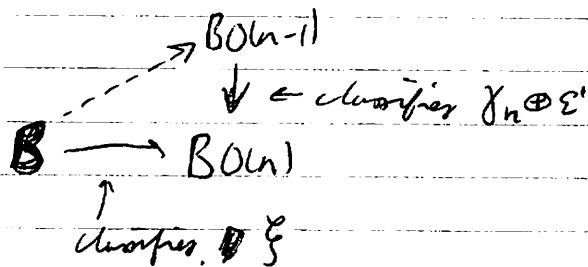 BO(n-1)
↓ ← classifies γₙ ⊕ ε¹
B → BO(n)
↑
classifies ξ